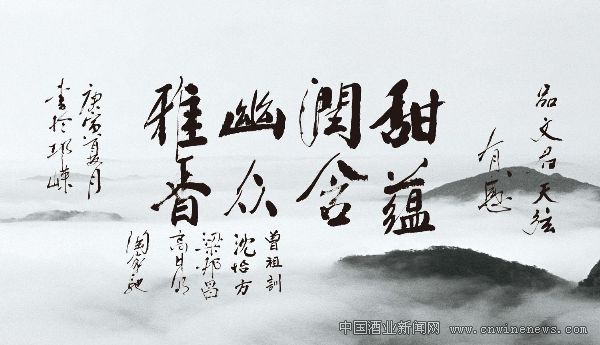 品文君天弦
有感
甜蕴
潤含
幽众
雅香
曾祖訓
沈怡方
梁邦昌
高月明
陶家驰
庚寅夏月
書於邛崍
中国酒业新闻网
www.cnwinenews.com